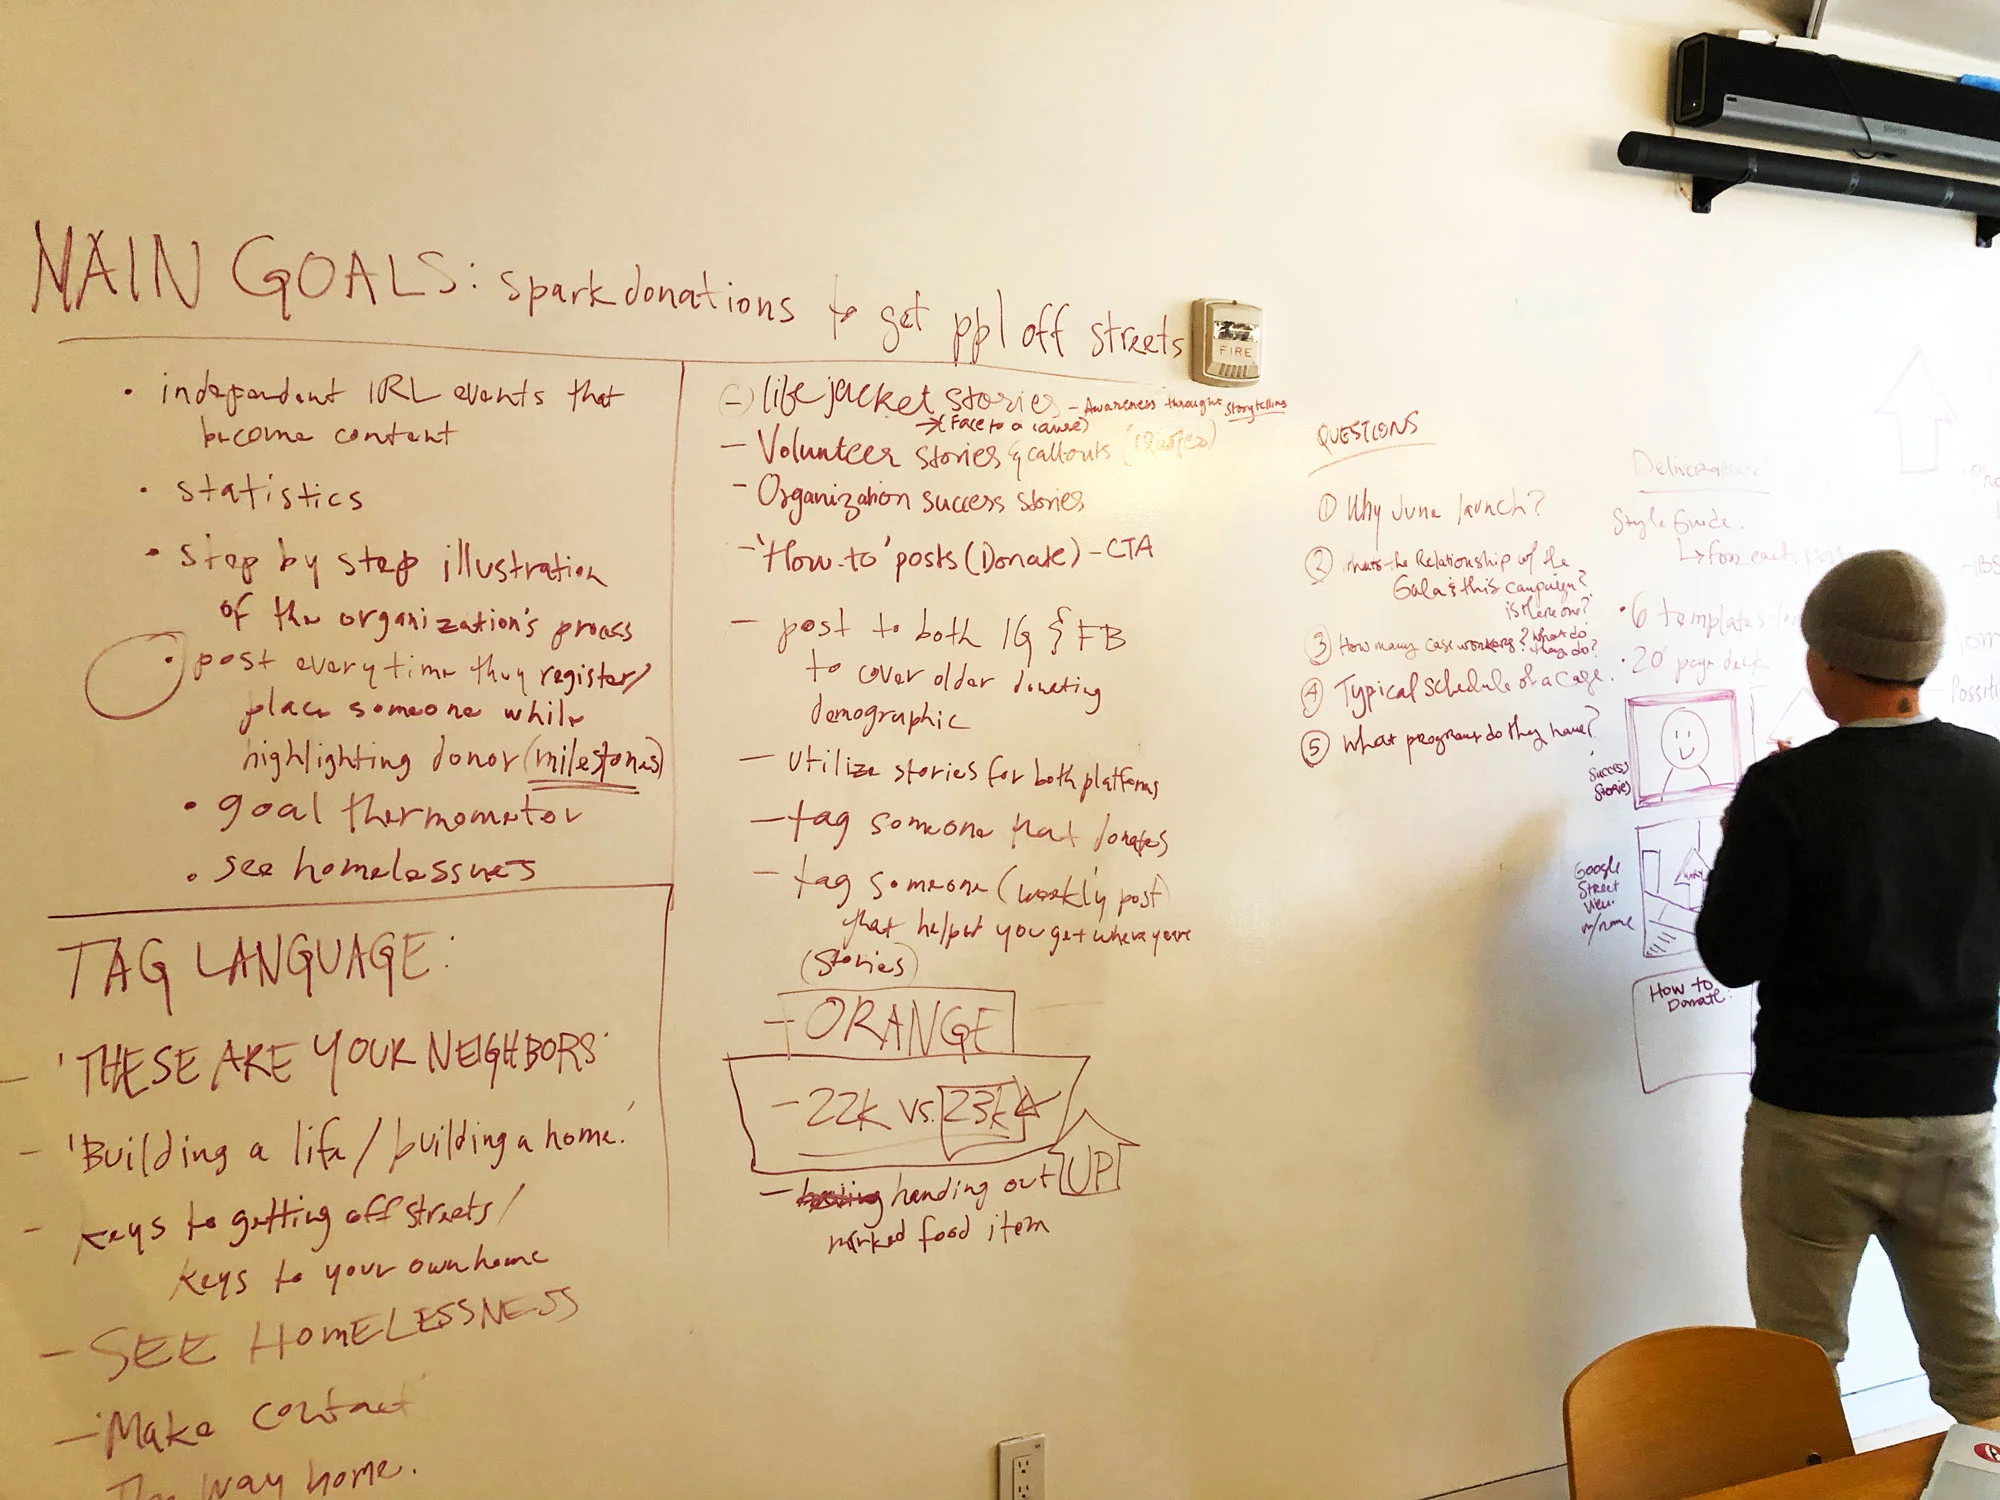 MAIN GOALS: spark donations to get ppl off streets
FIRE
• independent IRL events that
become content
• statistics
• step by step illustration
of the organization's process
• post every time they register/
place someone while
highlighting donor (milestones)
• goal thermometor
• see homelessness
TAG LANGUAGE:
- 'THESE ARE YOUR NEIGHBORS'
- 'Building a life/building a home.'
- keys to getting off streets/
keys to your own home
- SEE HOMELESSNESS
- 'Make contact'
The way home.
- life jacket stories - Awareness throught storytelling
→ (Face to a cause)
- Volunteer stories & callouts (Quotes)
- Organization success stories
- 'How-to' posts (Donate) - CTA
- post to both IG & FB
to cover older donating
demographic
- utilize stories for both platforms
- tag someone that donates
- tag someone (weekly post)
that helped you get where you're
(stories)
- ORANGE
- 22k vs. 23k
UP
- handing out
marked food item
QUESTIONS
① Why June launch?
② What's the Relationship w/ the
Gala & this campaign?
is there one?
③ How many case workers? What do they do?
④ Typical schedule of a case.
⑤ What programs do they have?
Style Guide.
↳ For each
• 6 templates
• 20 page deck
Success
Stories
Google
Street
View
w/name
How to
Donate: